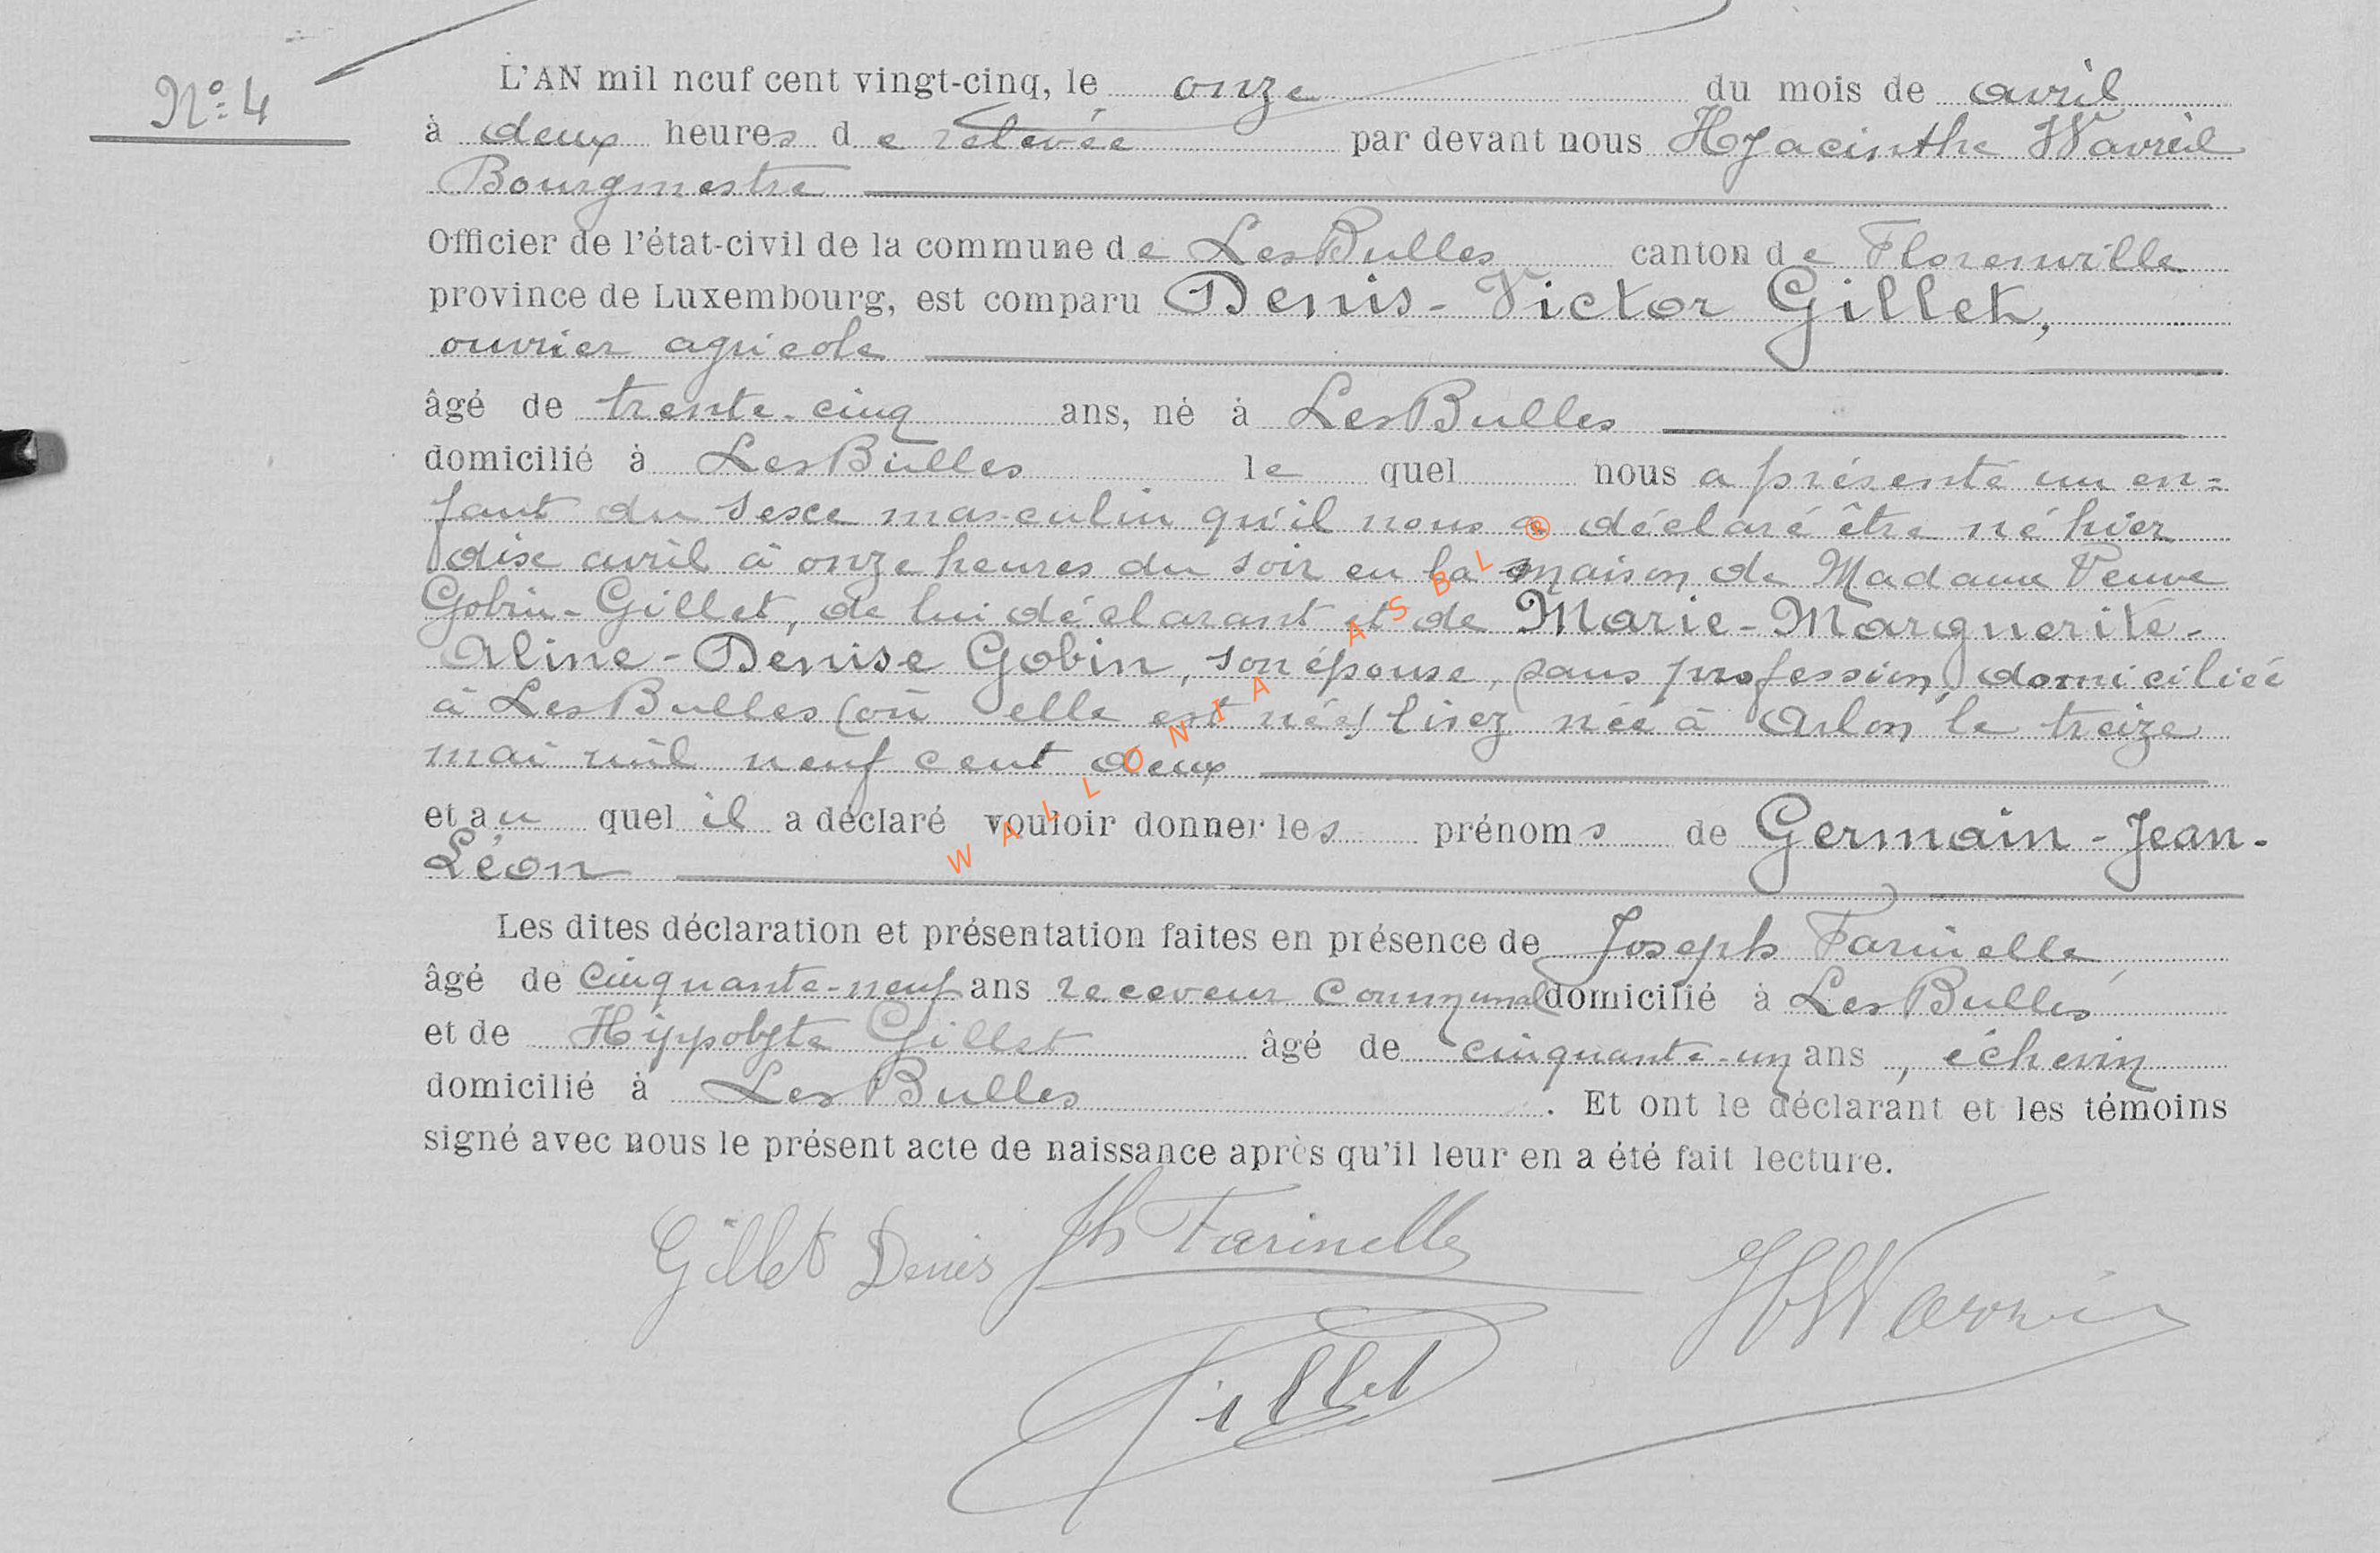 N° 4
L'AN mil neuf cent vingt-cinq, le onze du mois de avril
à deux heures de relevée par devant nous Hyacinthe Wavreil
Bourgmestre
Officier de l'état-civil de la commune de Les Bulles canton de Florenville
province de Luxembourg, est comparu Denis-Victor Gillet,
ouvrier agricole
âgé de trente-cinq ans, né à Les Bulles
domicilié à Les Bulles le quel nous a présenté un en=
fant du sexe masculin qu'il nous a déclaré être né hier
dix avril à onze heures du soir en la maison de Madame Veuve
Gobin-Gillet, de lui déclarant et de Marie-Marguerite-
Aline-Denise Gobin, son épouse, sans profession, domiciliée
à Les Bulles (où elle est née) lisez née à Arlon le treize
mai mil neuf cent deux
et au quel il a déclaré vouloir donner les prénoms de Germain-Jean-
Léon
Les dites déclaration et présentation faites en présence de Joseph Farinelle,
âgé de cinquante-neuf ans receveur communal domicilié à Les Bulles
et de Hippolyte Gillet âgé de cinquante-un ans, échevin
domicilié à Les Bulles. Et ont le déclarant et les témoins
signé avec nous le présent acte de naissance après qu'il leur en a été fait lecture.
Gillet Denis Jh Farinelle
Gillet
WALLONIA ASBL ®